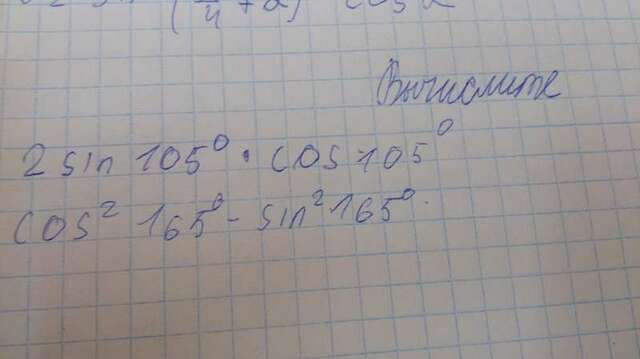 (π/4 + α) cos α
Вычислите
2 sin 105⁰ · cos 105⁰
cos² 165⁰ - sin² 165⁰.